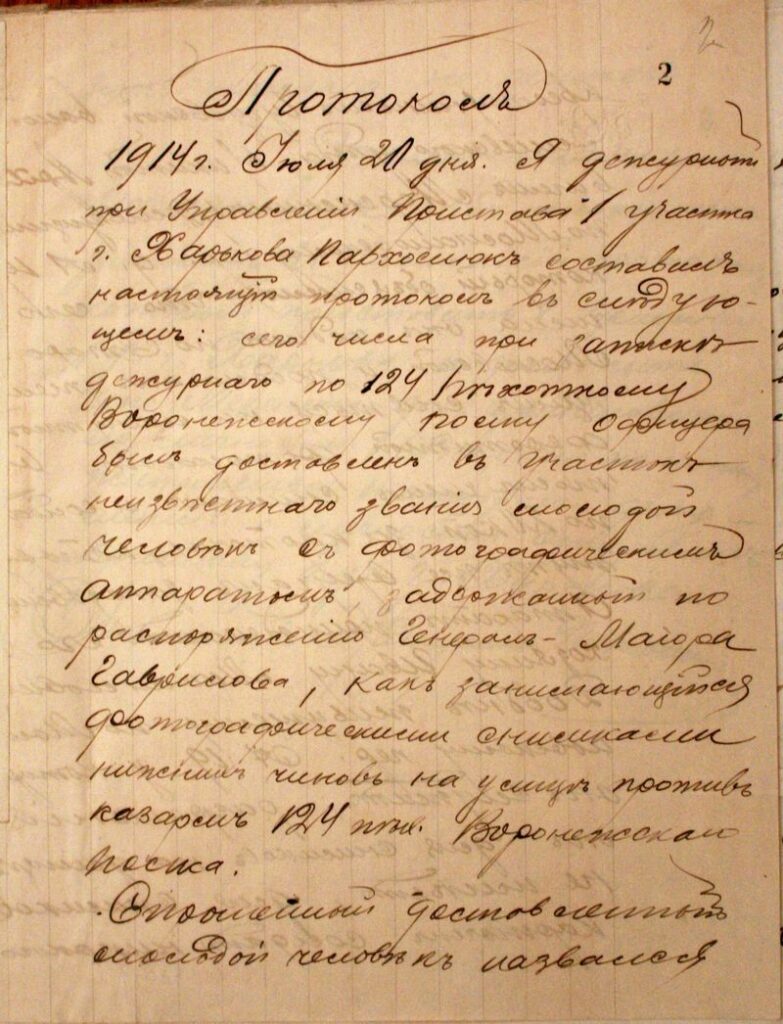 2
2
Протоколъ
1914 г. Іюля 20 дня. Я дежурный
при Управленіи Пристава 1 участка
г. Харькова Пархоменко составилъ
настоящій протоколъ въ слѣдую-
щемъ: сего числа при запискѣ
дежурнаго по 124 пѣхотному
Воронежскому полку Офицера
былъ доставленъ въ участокъ
неизвѣстнаго званія молодой
человѣкъ съ фотографическимъ
аппаратомъ, задержанный по
распоряженію Генералъ-Маіора
Гаврилова, какъ занимающійся
фотографическими снимками
нижнихъ чиновъ на улицѣ противъ
казармъ 124 пѣх. Воронежскаго
полка.
Опрошенный доставленный
молодой человѣкъ назвался